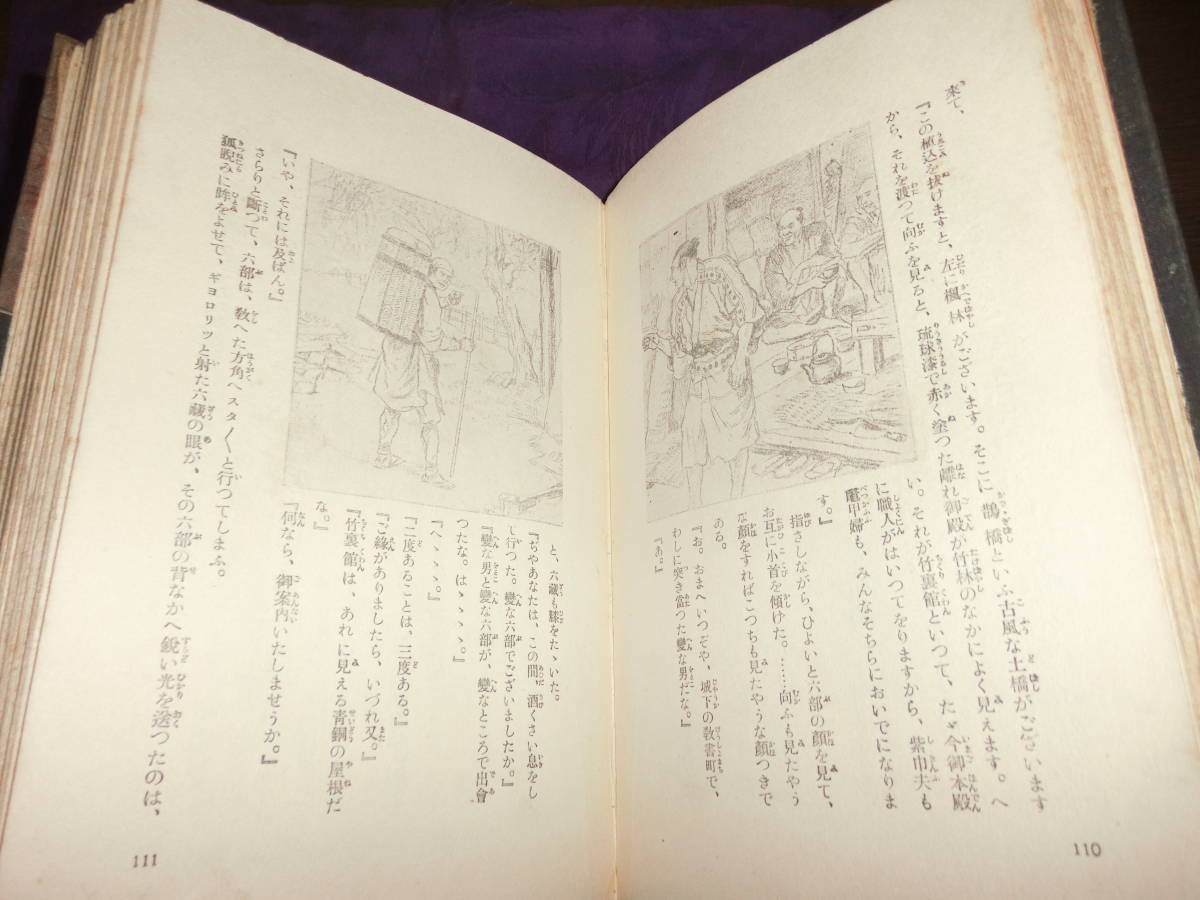 来て、
『この植込を抜けますと、左に楓林がございます。そこに鵲橋といふ古風な土橋がございます
から、それを渡つて向ふを見ると、琉球漆で赤く塗つた離れ御殿が竹林のなかによく見えます。へ
い。それが竹裏館といつて、たゞ今御本殿
に職人がはいつてをりますから、紫巾夫も
鼈甲婦も、みんなそちらにおいでになりま
す。』
指さしながら、ひよいと六部の顔を見て、
お互に小首を傾けた。……向ふも見たやう
な顔をすればこつちも見たやうな顔つきで
ある。
『お。おまへいつぞや、城下の敎書町で、
わしに突き當つた變な男だな。』
『あ。』
110
と、六蔵も膝をたゝいた。
『ぢやあなたは、この間、酒くさい息をし
て行つた。變な六部でございましたか。』
『變な男と變な六部が、變なところで出會
つたな。はゝゝゝ。』
『へゝゝゝ。』
『二度あることは、三度ある。』
『ご緣がありましたら、いづれ又。』
『竹裏館は、あれに見える青銅の屋根だ
な。』
『何なら、御案內いたしませうか。』
『いや、それには及ばん。』
さらりと斷つて、六部は、敎へた方角へスタ〳〵と行つてしまふ。
狐睨みに眸をよせて、ギョロリッと射た六蔵の眼が、その六部の背なかへ銳い光を送つたのは、
111